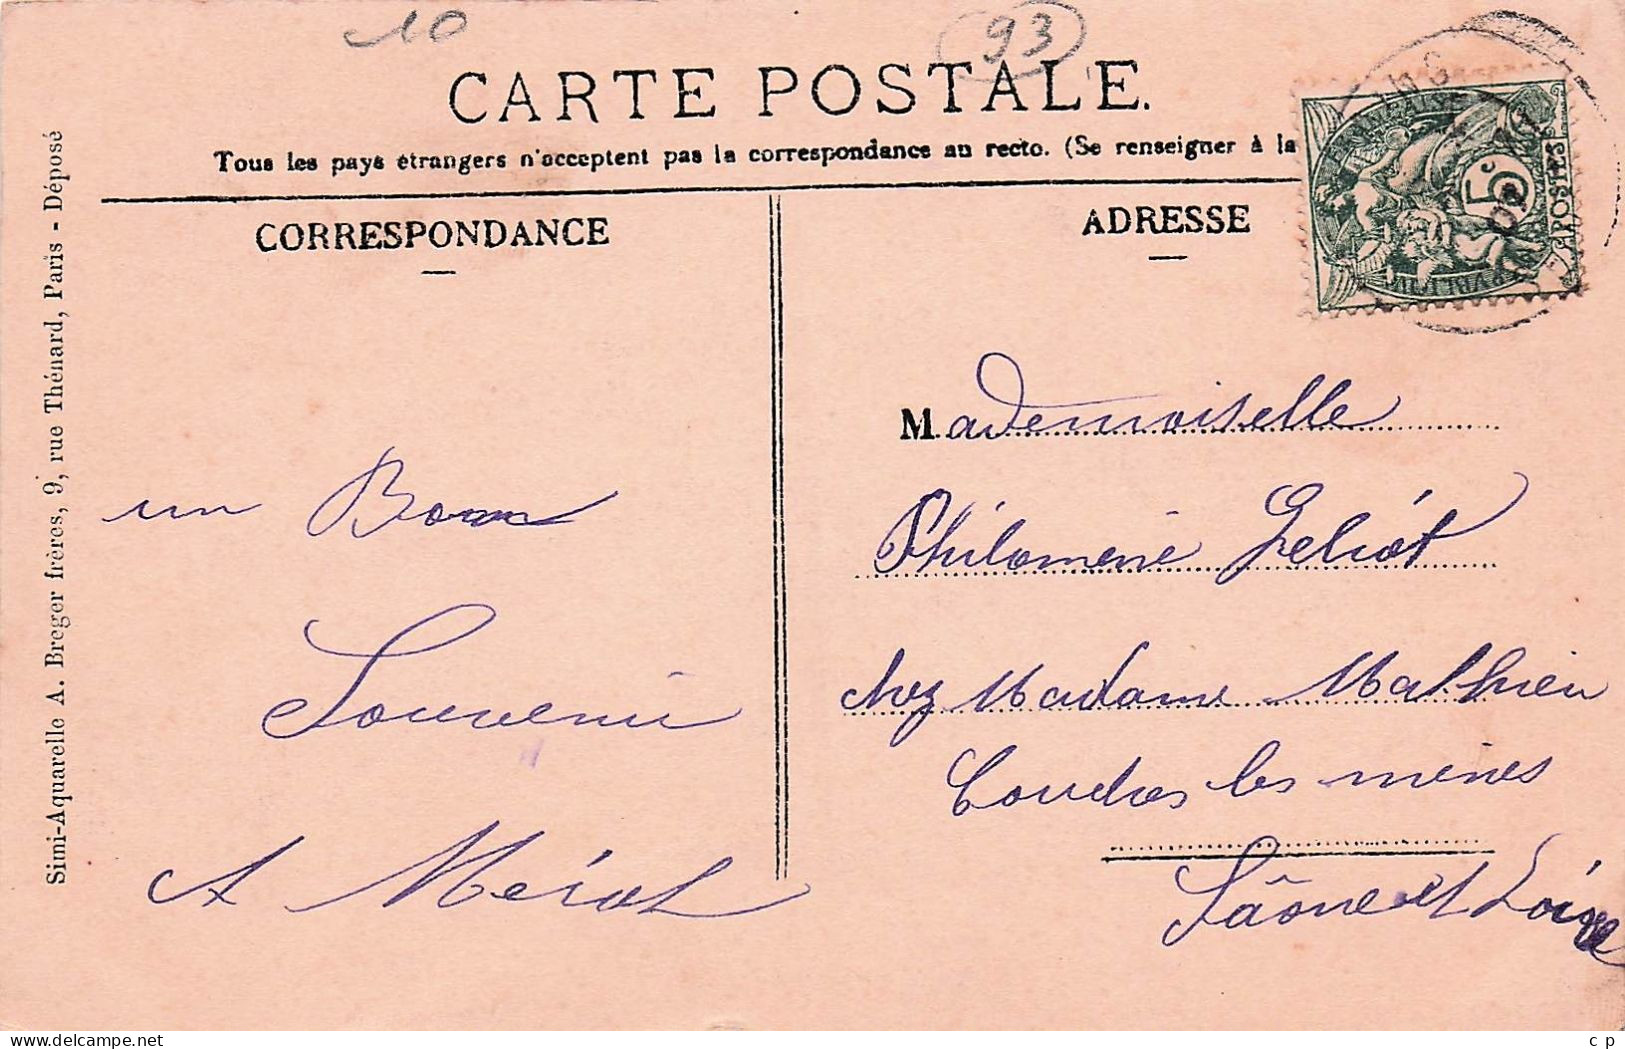 10
93
CARTE POSTALE.
Tous les pays étrangers n'acceptent pas la correspondance au recto. (Se renseigner à la
CORRESPONDANCE
ADRESSE
5c
POSTES
Simi-Aquarelle A. Breger frères, 9, rue Thénard, Paris - Déposé
un Bon
Souvenir
A
Mademoiselle
Philomène Geliot
chez Madame Mathieu
les mines
Sâone et Loire
delcampe.net
c p